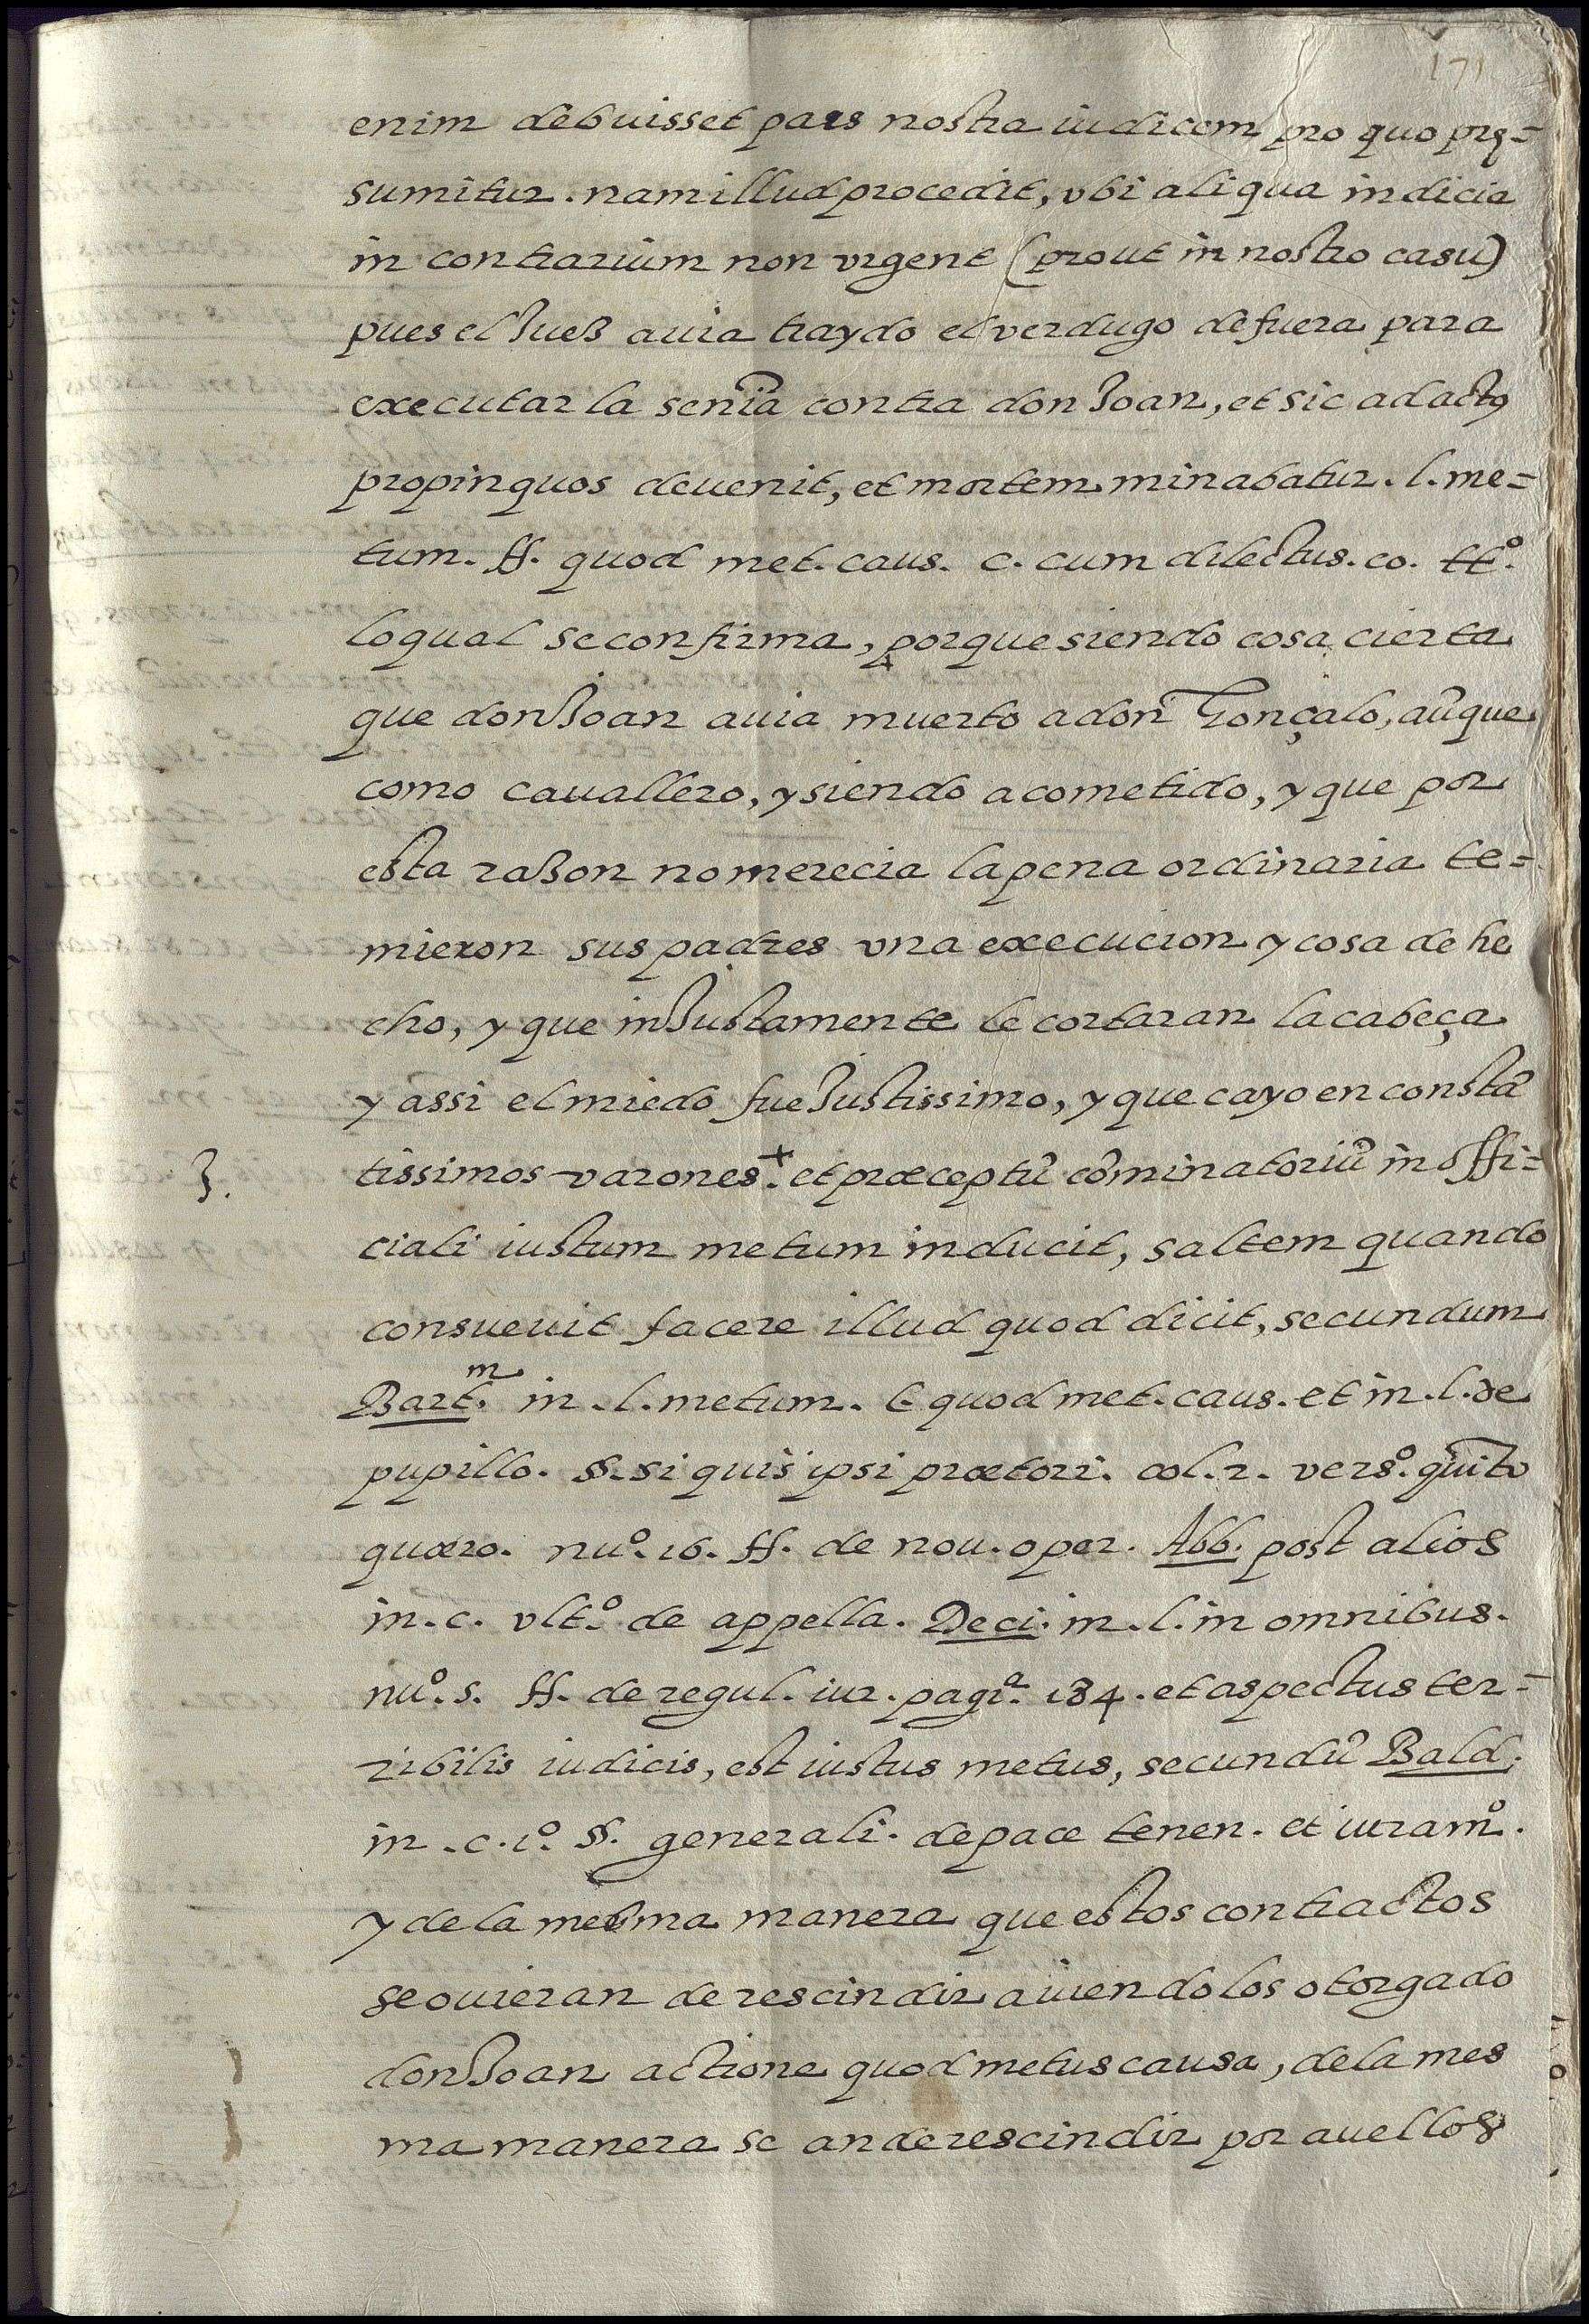 171
enim debuisset pars nostra iudicem pro quo prę=
sumitur. nam illud procedit, vbi aliqua indicia
in contrarium non vrgent (prout in nostro casu)
pues el Juez auia traydo el verdugo de fuera para
executar la senia contra don Joan, et sic ad actus
propinquos deuenit, et mortem minabatur. l. me=
tum. ff. quod met. caus. c. cum dilectus. eo. ttº.
lo qual se confirma, porque siendo cosa cierta
que don Joan auia muerto a don Gonçalo, aũque
como cauallero, y siendo acometido, y que por
esta razon no merecia la pena ordinaria te=
mieron sus padres vna execucion y cosa de he
cho, y que inJustamente le cortaran la cabeça
y assi el miedo fue Justissimo, y que cayo en constã
3. tissimos varones.+ et præceptũ cõminatoriũ in offi=
ciali iustum metum inducit, saltem quando
consueuit facere illud quod dicit, secundum
Bart.m in. l. metum. C quod met. caus. et in. l. de
pupillo. §. si quis ipsi prætori. col. 2. versº. quĩto
quæro. nuº. 16. ff. de nou. oper. Abb. post alios
in. c. vltº. de appella. Deci. in. l. in omnibus.
nuº. 5. ff. de regul. iur. pagiª. 184. et aspectus ter=
ribilis iudicis, est iustus metus, secundũ Bald.
in. c. 1º. §. generali. de pace tenen. et iuramº.
y de la mesma manera que estos contractos
se ouieran de rescindir auiendolos otorgado
don Joan actione quod metus causa, de la mes
ma manera se an de rescindir por auellos